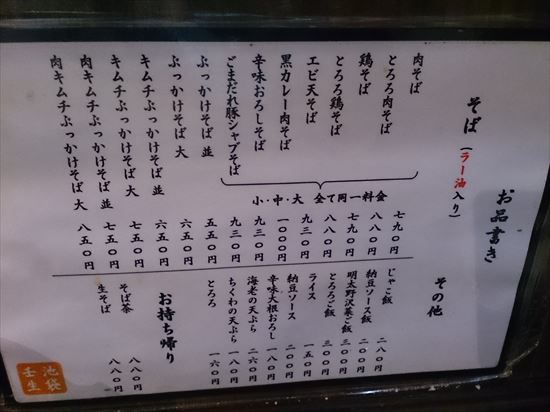 お品書き
そば（ラー油入り）
肉そば 七九〇円
とろろ肉そば 八八〇円
鶏そば 七九〇円
とろろ鶏そば 八八〇円
エビ天そば 九三〇円
黒カレー肉そば 一〇〇〇円
辛味おろしそば 九三〇円
ごまだれ豚シャブそば 九三〇円
小・中・大 全て同一料金
ぶっかけそば 並 五五〇円
ぶっかけそば 大 六五〇円
キムチぶっかけそば 並 六五〇円
キムチぶっかけそば 大 七五〇円
肉キムチぶっかけそば 並 七五〇円
肉キムチぶっかけそば 大 八五〇円
その他
じゃこ飯 二八〇円
納豆ソース飯 二八〇円
明太野沢菜ご飯 三〇〇円
とろろご飯 三〇〇円
ライス 一五〇円
納豆ソース 二〇〇円
辛味大根おろし 一八〇円
海老の天ぷら 二六〇円
ちくわの天ぷら 一八〇円
とろろ 一六〇円
お持ち帰り
そば茶 八八〇円
生そば 八八〇円
池袋
壬生